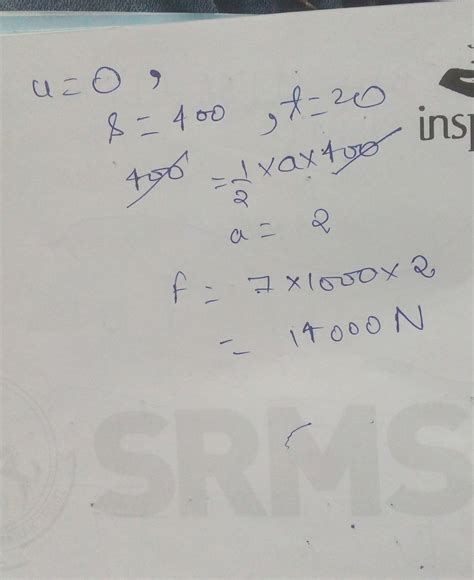 u = 0 ,
s = 400 , t = 20
insp
400 = 1/2 × a × 400
a = 2
f = 7 × 1000 × 2
= 14000 N
SRMS